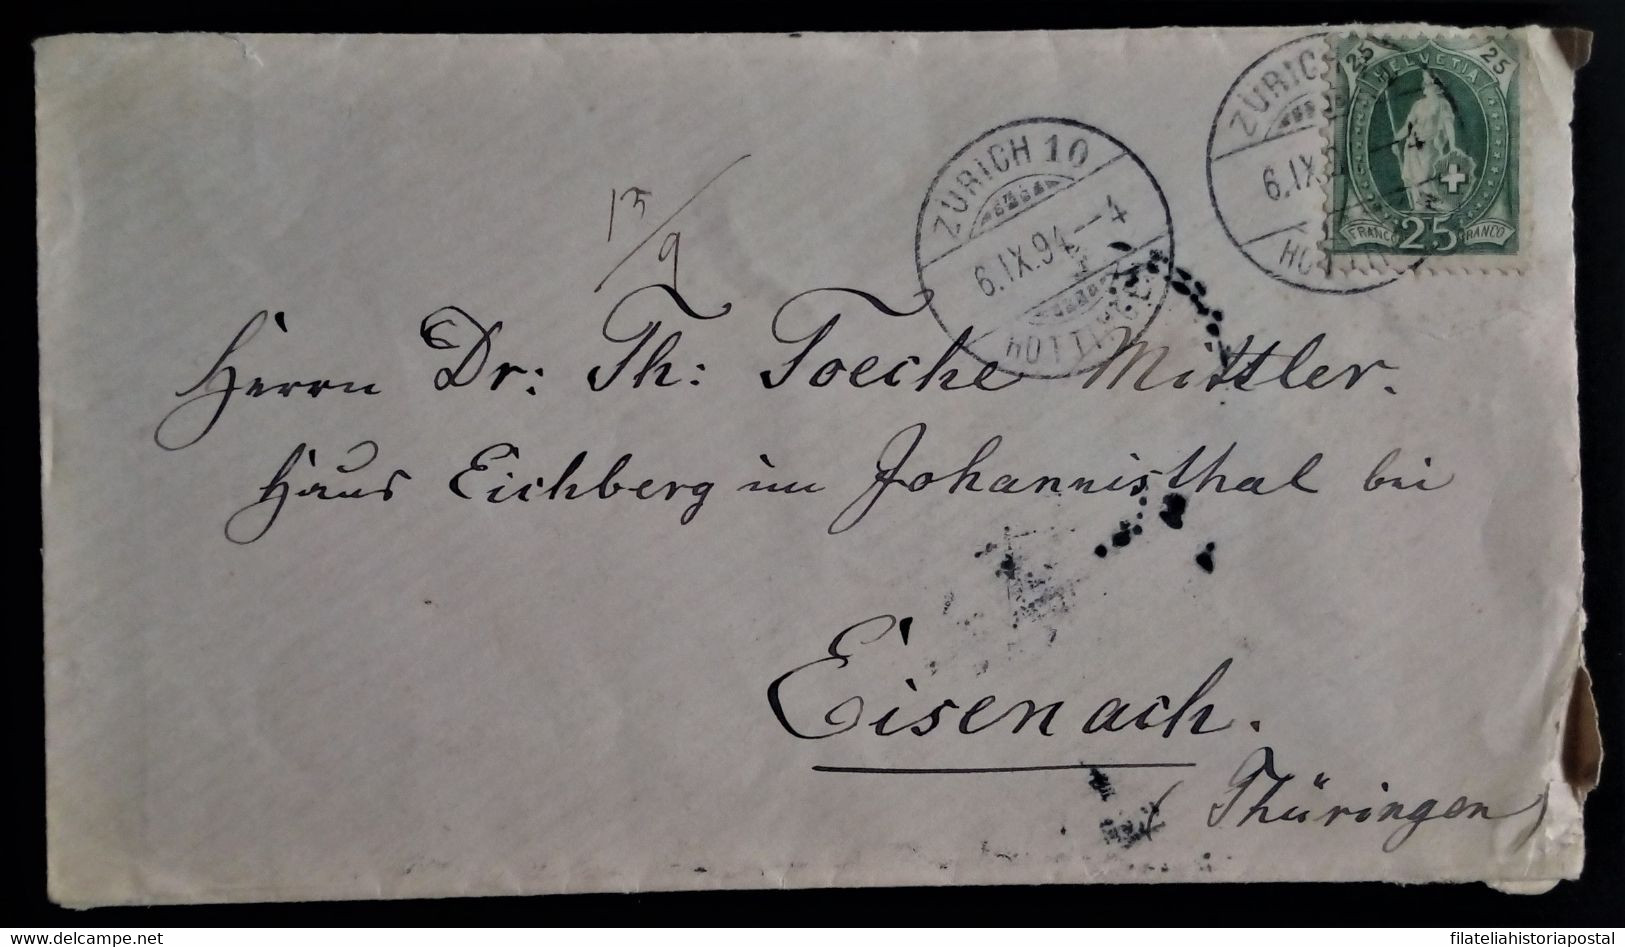 ZÜRICH 10
6.IX.94-4
HOTTINGEN
ZÜRICH
6.IX.
4
25 HELVETIA 25
FRANCO 25 FRANCO
13/9
Herrn Dr: Th: Toeche Mittler.
Haus Eichberg im Johannisthal bei
Eisenach.
(Thüringen)
filateliahistoriapostal